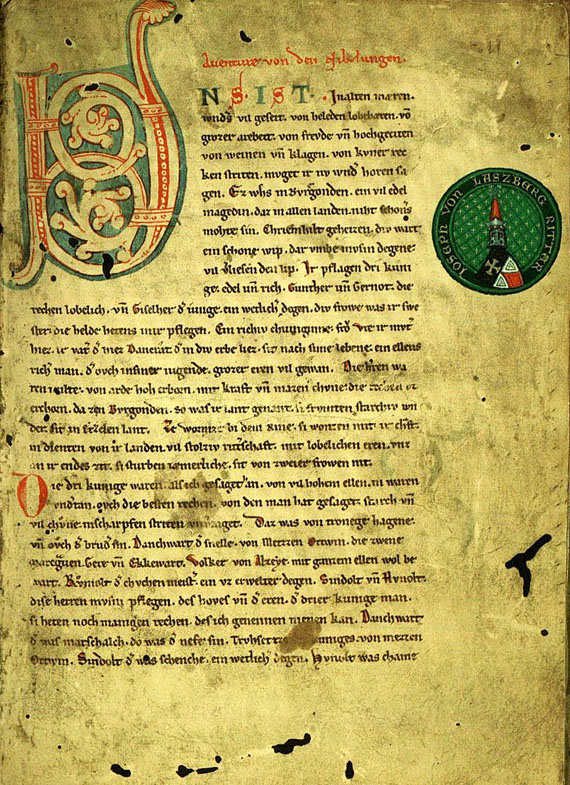 Aventure von den Nibelungen.
VNS. IST. In alten mæren.
wnds vil geseit. von heleden lobebæren. vō
grozer arebeit. von frevde vn̄ hochgeciten
von weinen vn̄ klagen. von kvner rec
ken striten. mvget ir nv wnds horen sa
gen. Ez whs in Bvrgonden. ein vil edel
magedin. daz in allen landen. niht schoners
mohte sin. Chriemhilt geheizen. div wart
ein schone wip. dar vmbe mvsin degene.
vil vliesen den lip. Ir pflagen dri kuni
ge. edel vn̄ rich. Gunther vn̄ Gernot. die
rechen lobelich. vn̄ Giselher d iunge. ein wetlich degen. div frowe was ir swe
ster. die helde
Ein richiv chuniginne. frō Vte ir mvt
hiez. ir vat d hiez Dancrat. d in div erbe liez. sit nach sime lebene. ein ellens
rich man. d ovch in siner iugende. grozer eren vil gewan. Die hren wa
ren milte. von arde hoh erborn. mit kraft vnmazen chvne. die rechen vz
erchorn. da zen Bvrgonden. so was ir lant genant. si frvmten starchiv wn
der. sit in Etzelen lant. Ze wormze bi dem Rine. si wonten mit ir chft.
in dienten von ir landen. vil stolziv ritschaft. mit lobelichen eren. vnz
an ir endes zit. si sturben iæmerliche. sit von zweier frowen nit.
Die dri kunige waren. als ich gesaget han. von vil hohem ellen. in waren
vndtan. ovch die besten rechen. von den man hat gesaget. starch vn̄
vil chvne. in scharpfen striten vnverzaget. Daz was von tronege hagene.
vn̄ ovch d brud sin. Danchwart d snelle. von Metzzen Ortwin. die zwene
marcgven. Gere vn̄ Ekkewart. Volker von Alzeye. mit ganzem ellen wol be
wart. Rvmolt d chvchen meist. ein vz erwelter degen. Sindolt vn̄ Hvnolt.
dise herren mvsin pflegen. des hoves vn̄ d eren. d drier kunige man.
si heten noch manigen rechen. des ich genennen nienen kan. Danchwart
d was marschalch. do was d nefe sin. Trvhsetze des kuniges. von metzen
Ortwin. Sindolt d was schenche. ein wetlich degen. Hvnolt was chame
IOSEPH VON LASZBERG RITTER